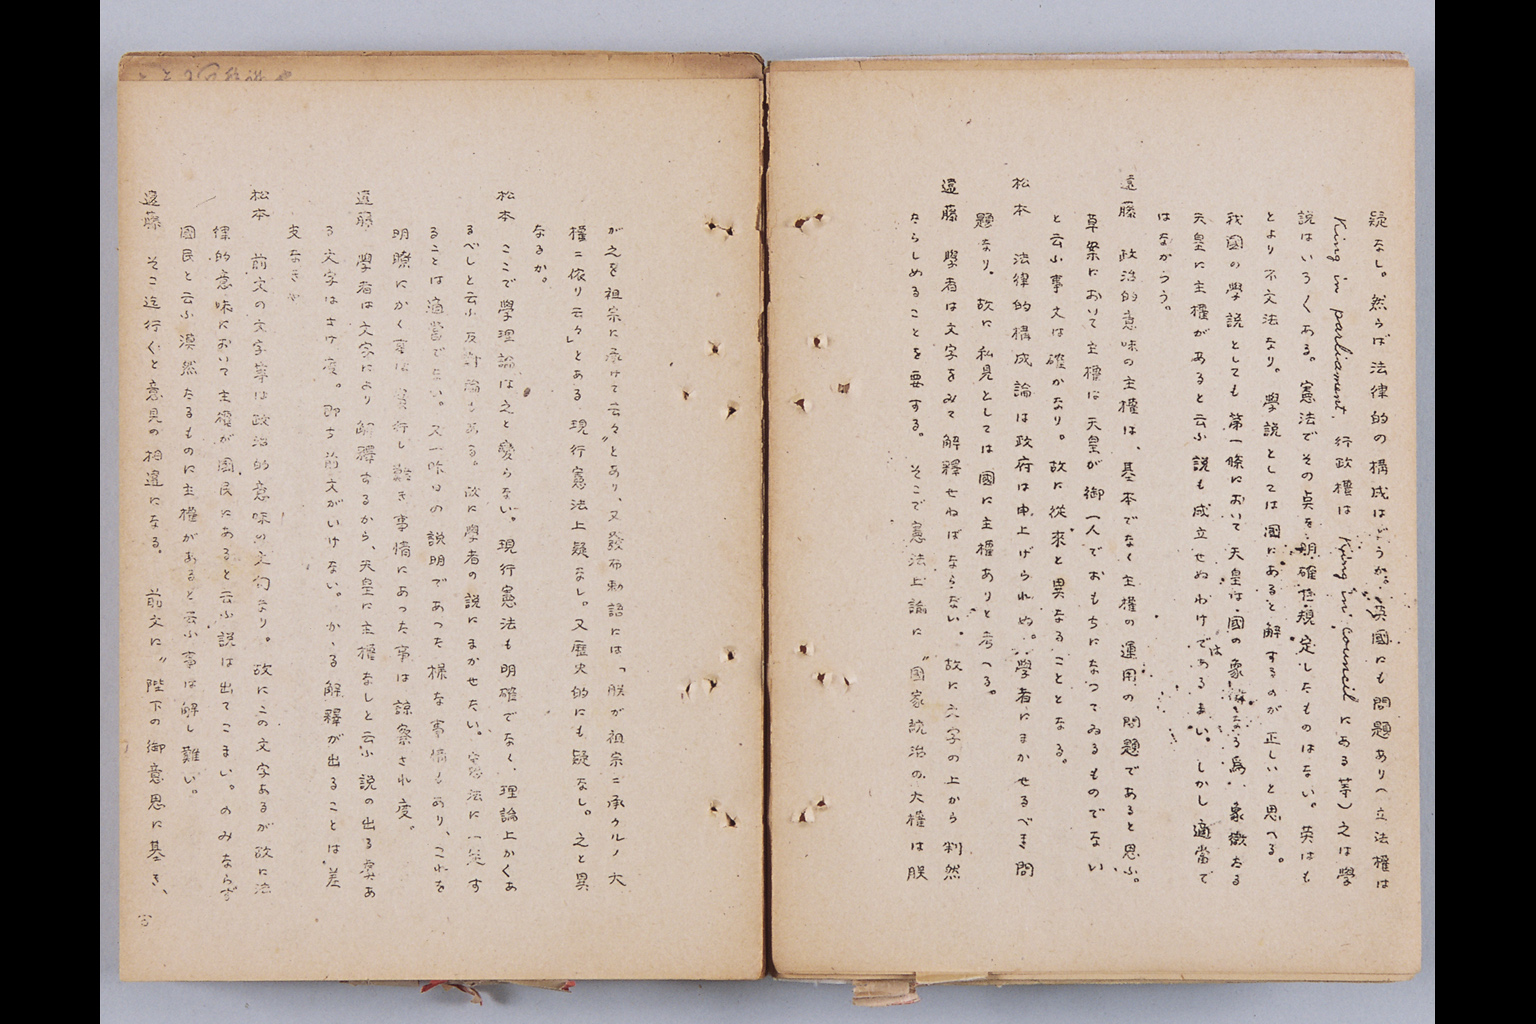 疑なし。然らば法律的の構成はどうか。英國にも問題あり（立法權は
King in parliament, 行政權は King in council にある等）之は學
説はいろくある。憲法でその点を明確に規定したものはない。英はも
とより不文法なり。學説としては國にあると解するのが正しいと思へる。
我國の學説としても第一條において天皇は國の象徴なる為、象徴たる
天皇に主權があると云ふ説も成立せぬわけではあるまい。しかし適當で
はなからう。
遠藤　政治的意味の主權は、基本でなく主權の運用の問題であると思ふ。
草案において主權は天皇が御一人でおもちになつてゐるものでない
と云ふ事丈は確かなり。故に從來と異なることとなる。
松本　法律的構成論は政府は申上げられぬ。學者にまかせるべき問
題なり。故に私見としては國に主權ありと考へる。
遠藤　學者は文字をみて解釋せねばならない。故に文字の上から判然
たらしめることを要する。そこで憲法上諭に〝國家統治の大權は朕
が之を祖宗に承けて云々〟とあり、又發布勅語には「朕が祖宗ニ承クルノ大
權ニ依リ云々」とある。現行憲法上疑なし。又歴史的にも疑なし。之と異
なるか。
松本　ここで學理論は之と變らない。現行憲法も明確でなく、理論上かくあ
るべしと云ふ反對論もある。故に學者の説にまかせたい。憲法に一定す
ることは適當でない。又一昨日の説明であつた様な事情もあり、これを
明瞭にかく事は實行し難き事情にあつた事は諒察され度。
遠藤　學者は文字により解釋するから、天皇に主權なしと云ふ説の出る奠あ
る文字はさけ度。即ち前文がいけない。かゝる解釋が出ることは差
支なきや
松本　前文の文字寧は政治的意味の文句なり。故にこの文字あるが故に法
律的意味において主權が國民にあると云ふ説は出てこまい。のみならず
國民と云ふ漠然たるものに主權があると云ふ事は解し難い。
遠藤　そこ迄行くと意見の相違になる。前文に〝陛下の御意思に基き、